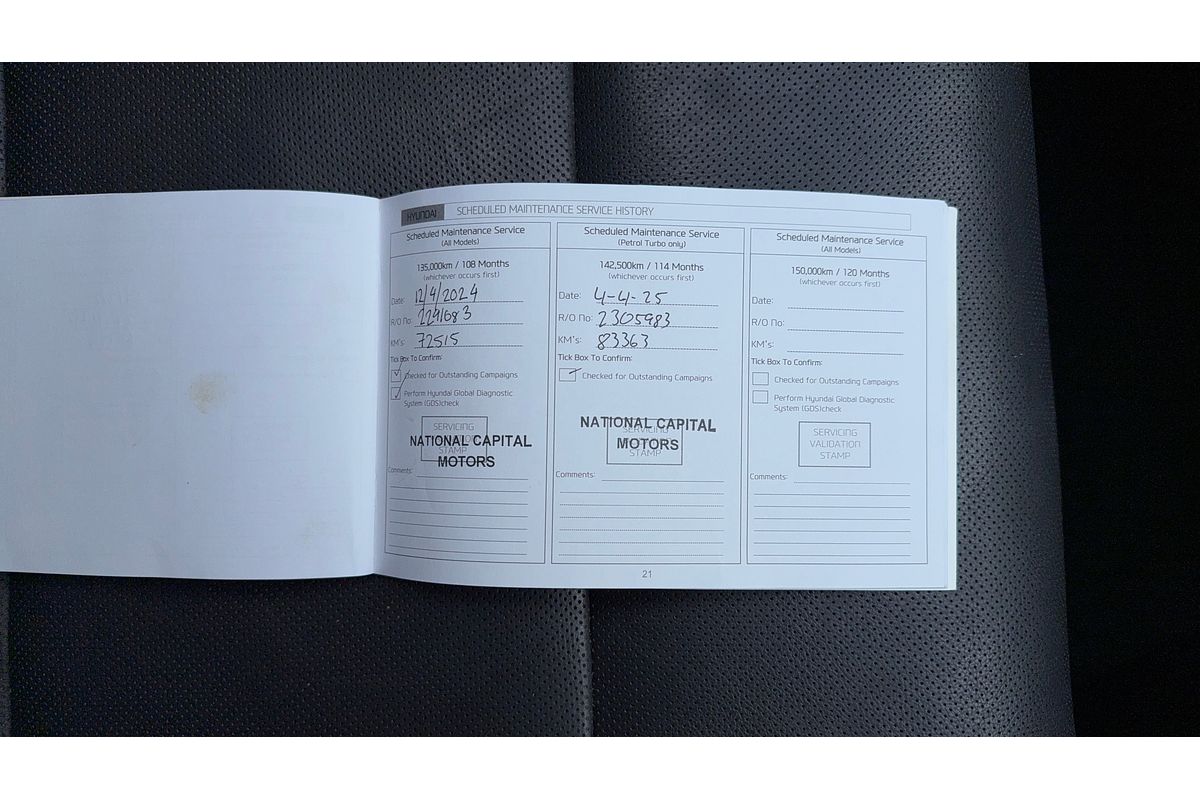 HYUNDAI SCHEDULED MAINTENANCE SERVICE HISTORY
Scheduled Maintenance Service
(All Models)
135,000km / 108 Months
(whichever occurs first)
Date: 12/4/2024
R/O No: 2291683
KM's: 72515
Tick Box To Confirm:
Checked for Outstanding Campaigns
Perform Hyundai Global Diagnostic
System (GDS)check
SERVICING
STAMP
NATIONAL CAPITAL
MOTORS
Comments:
Scheduled Maintenance Service
(Petrol Turbo only)
142,500km / 114 Months
(whichever occurs first)
Date: 4-4-25
R/O No: 2305983
KM's: 83363
Tick Box To Confirm:
Checked for Outstanding Campaigns
NATIONAL CAPITAL
MOTORS
SERVICING
STAMP
Comments:
Scheduled Maintenance Service
(All Models)
150,000km / 120 Months
(whichever occurs first)
Date:
R/O No:
KM's:
Tick Box To Confirm:
Checked for Outstanding Campaigns
Perform Hyundai Global Diagnostic
System (GDS)check
SERVICING
VALIDATION
STAMP
Comments:
21